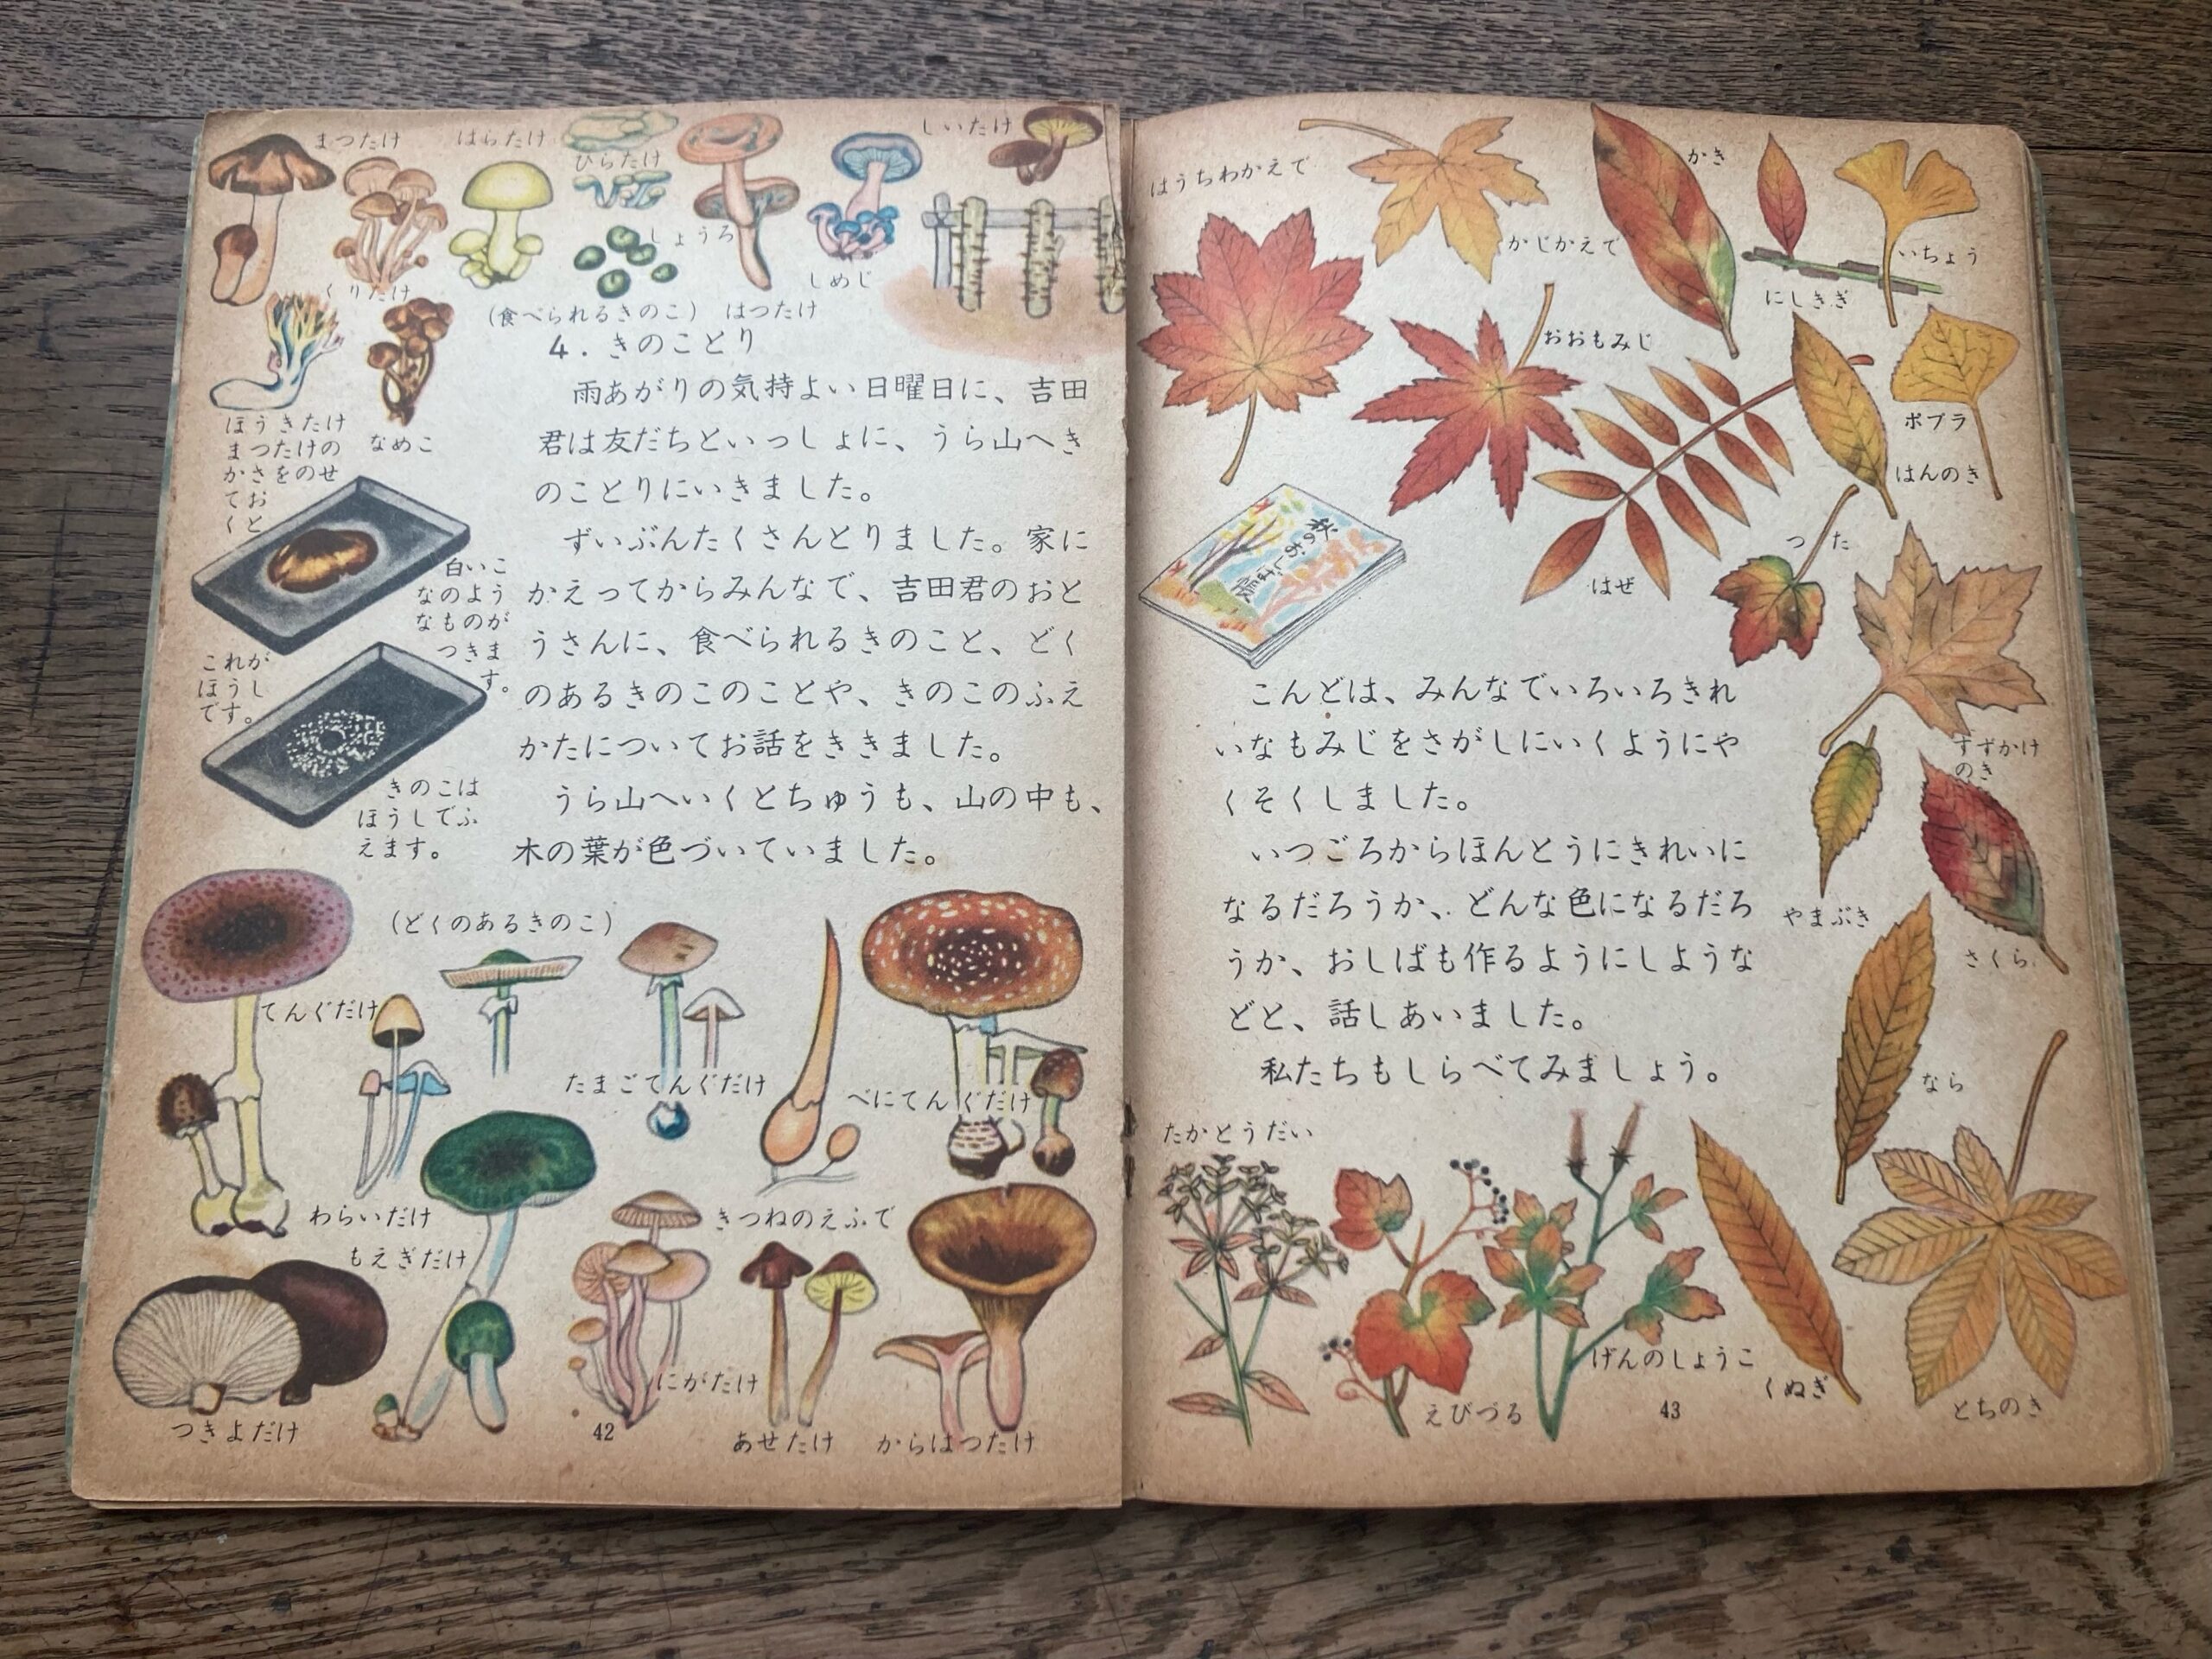 まつたけ
はらたけ
ひらたけ
しいたけ
しょうろ
しめじ
くりたけ
(食べられるきのこ)
はつたけ
4. きのことり
雨あがりの気持よい日曜日に、吉田
君は友だちといっしょに、うら山へき
のことりにいきました。
ずいぶんたくさんとりました。家に
かえってからみんなで、吉田君のおと
うさんに、食べられるきのこと、どく
のあるきのこのことや、きのこのふえ
かたについてお話をききました。
うら山へいくとちゅうも、山の中も、
木の葉が色づいていました。
ほうきたけ
なめこ
まつたけの
かさをのせ
てお
くと
白いこ
なのよう
なものが
つきま
す。
これが
ほうし
です。
きのこは
ほうしでふ
えます。
(どくのあるきのこ)
てんぐだけ
たまごてんぐだけ
べにてんぐだけ
わらいだけ
きつねのえふで
もえぎだけ
にがたけ
つきよだけ
あせたけ
からはつたけ
42
はうちわかえで
かじかえで
かき
にしきぎ
いちょう
おおもみじ
ポプラ
はんのき
はぜ
つた
秋のおしば帳
すずかけ
のき
こんどは、みんなでいろいろきれ
いなもみじをさがしにいくようにや
くそくしました。
いつごろからほんとうにきれいに
なるだろうか、どんな色になるだろ
うか、おしばも作るようにしような
どと、話しあいました。
私たちもしらべてみましょう。
やまぶき
さくら
なら
たかとうだい
えびづる
げんのしょうこ
くぬぎ
とちのき
43